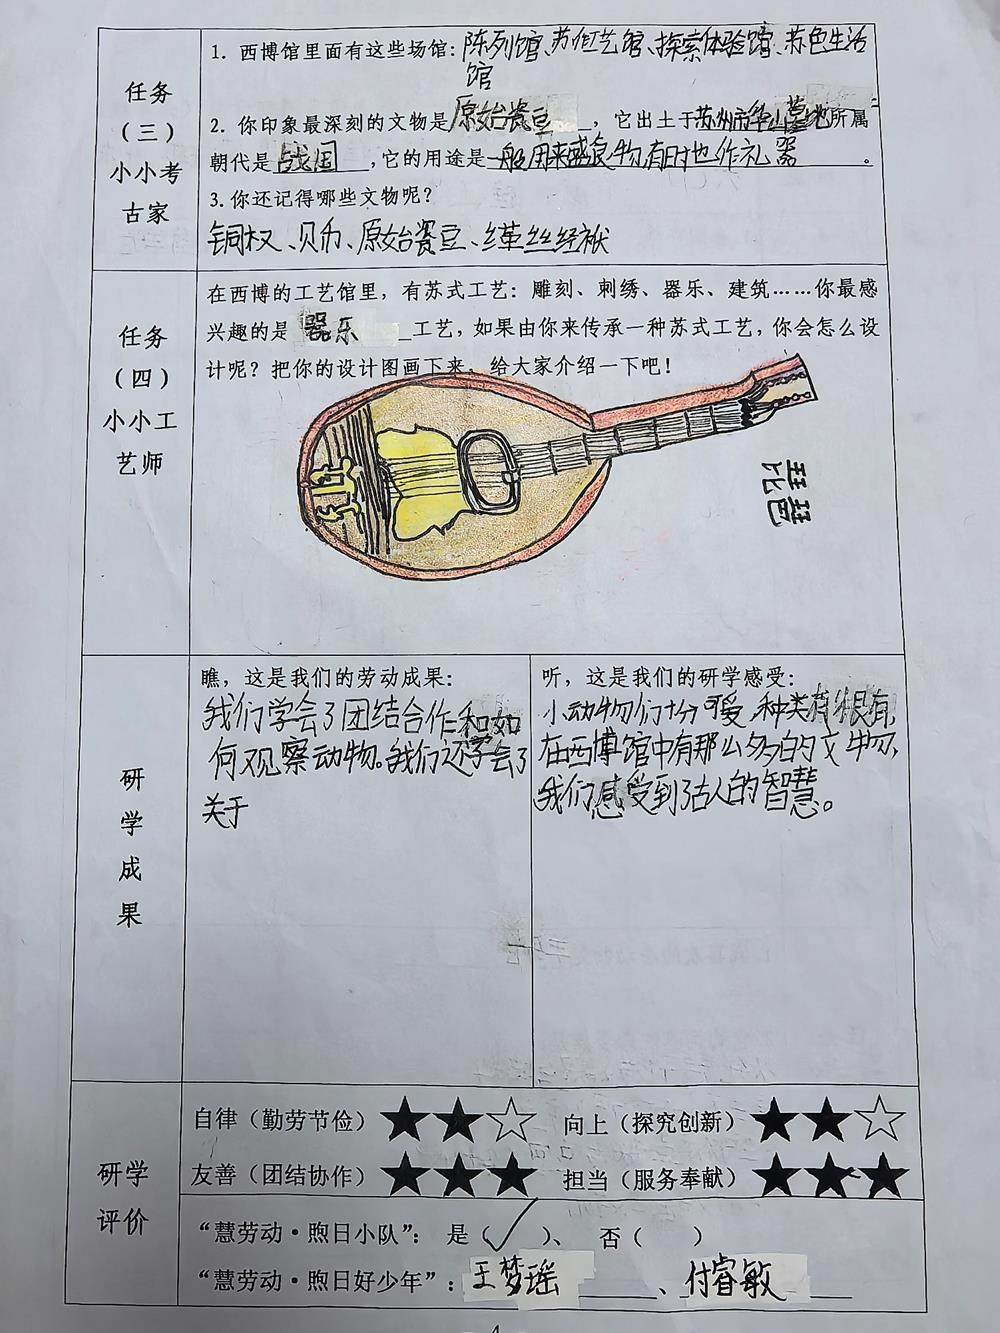 任务
（三）
小小考
古家
1. 西博馆里面有这些场馆：陈列馆、苏作工艺馆、探索体验馆、苏色生活
馆
2. 你印象最深刻的文物是原始瓷豆，它出土于苏州市华山墓地所属
朝代是战国，它的用途是一般用来盛食物,有时也作礼器。
3. 你还记得哪些文物呢？
铜权、贝币、原始瓷豆、缂丝经袱
任务
（四）
小小工
艺师
在西博的工艺馆里，有苏式工艺：雕刻、刺绣、器乐、建筑……你最感
兴趣的是器乐工艺，如果由你来传承一种苏式工艺，你会怎么设
计呢？把你的设计图画下来，给大家介绍一下吧！
琵琶
研
学
成
果
瞧，这是我们的劳动成果：
我们学会了团结合作和如
何观察动物。我们还学会了
关于
听，这是我们的研学感受：
小动物们十分可爱,种类有很有,
在西博馆中有那么多的文物,
我们感受到了古人的智慧。
研学
评价
自律（勤劳节俭）★★☆ 向上（探究创新）★★☆
友善（团结协作）★★★ 担当（服务奉献）★★★
“慧劳动·煦日小队”： 是（✓）、 否（ ）
“慧劳动·煦日好少年”：王梦瑶、付睿敏